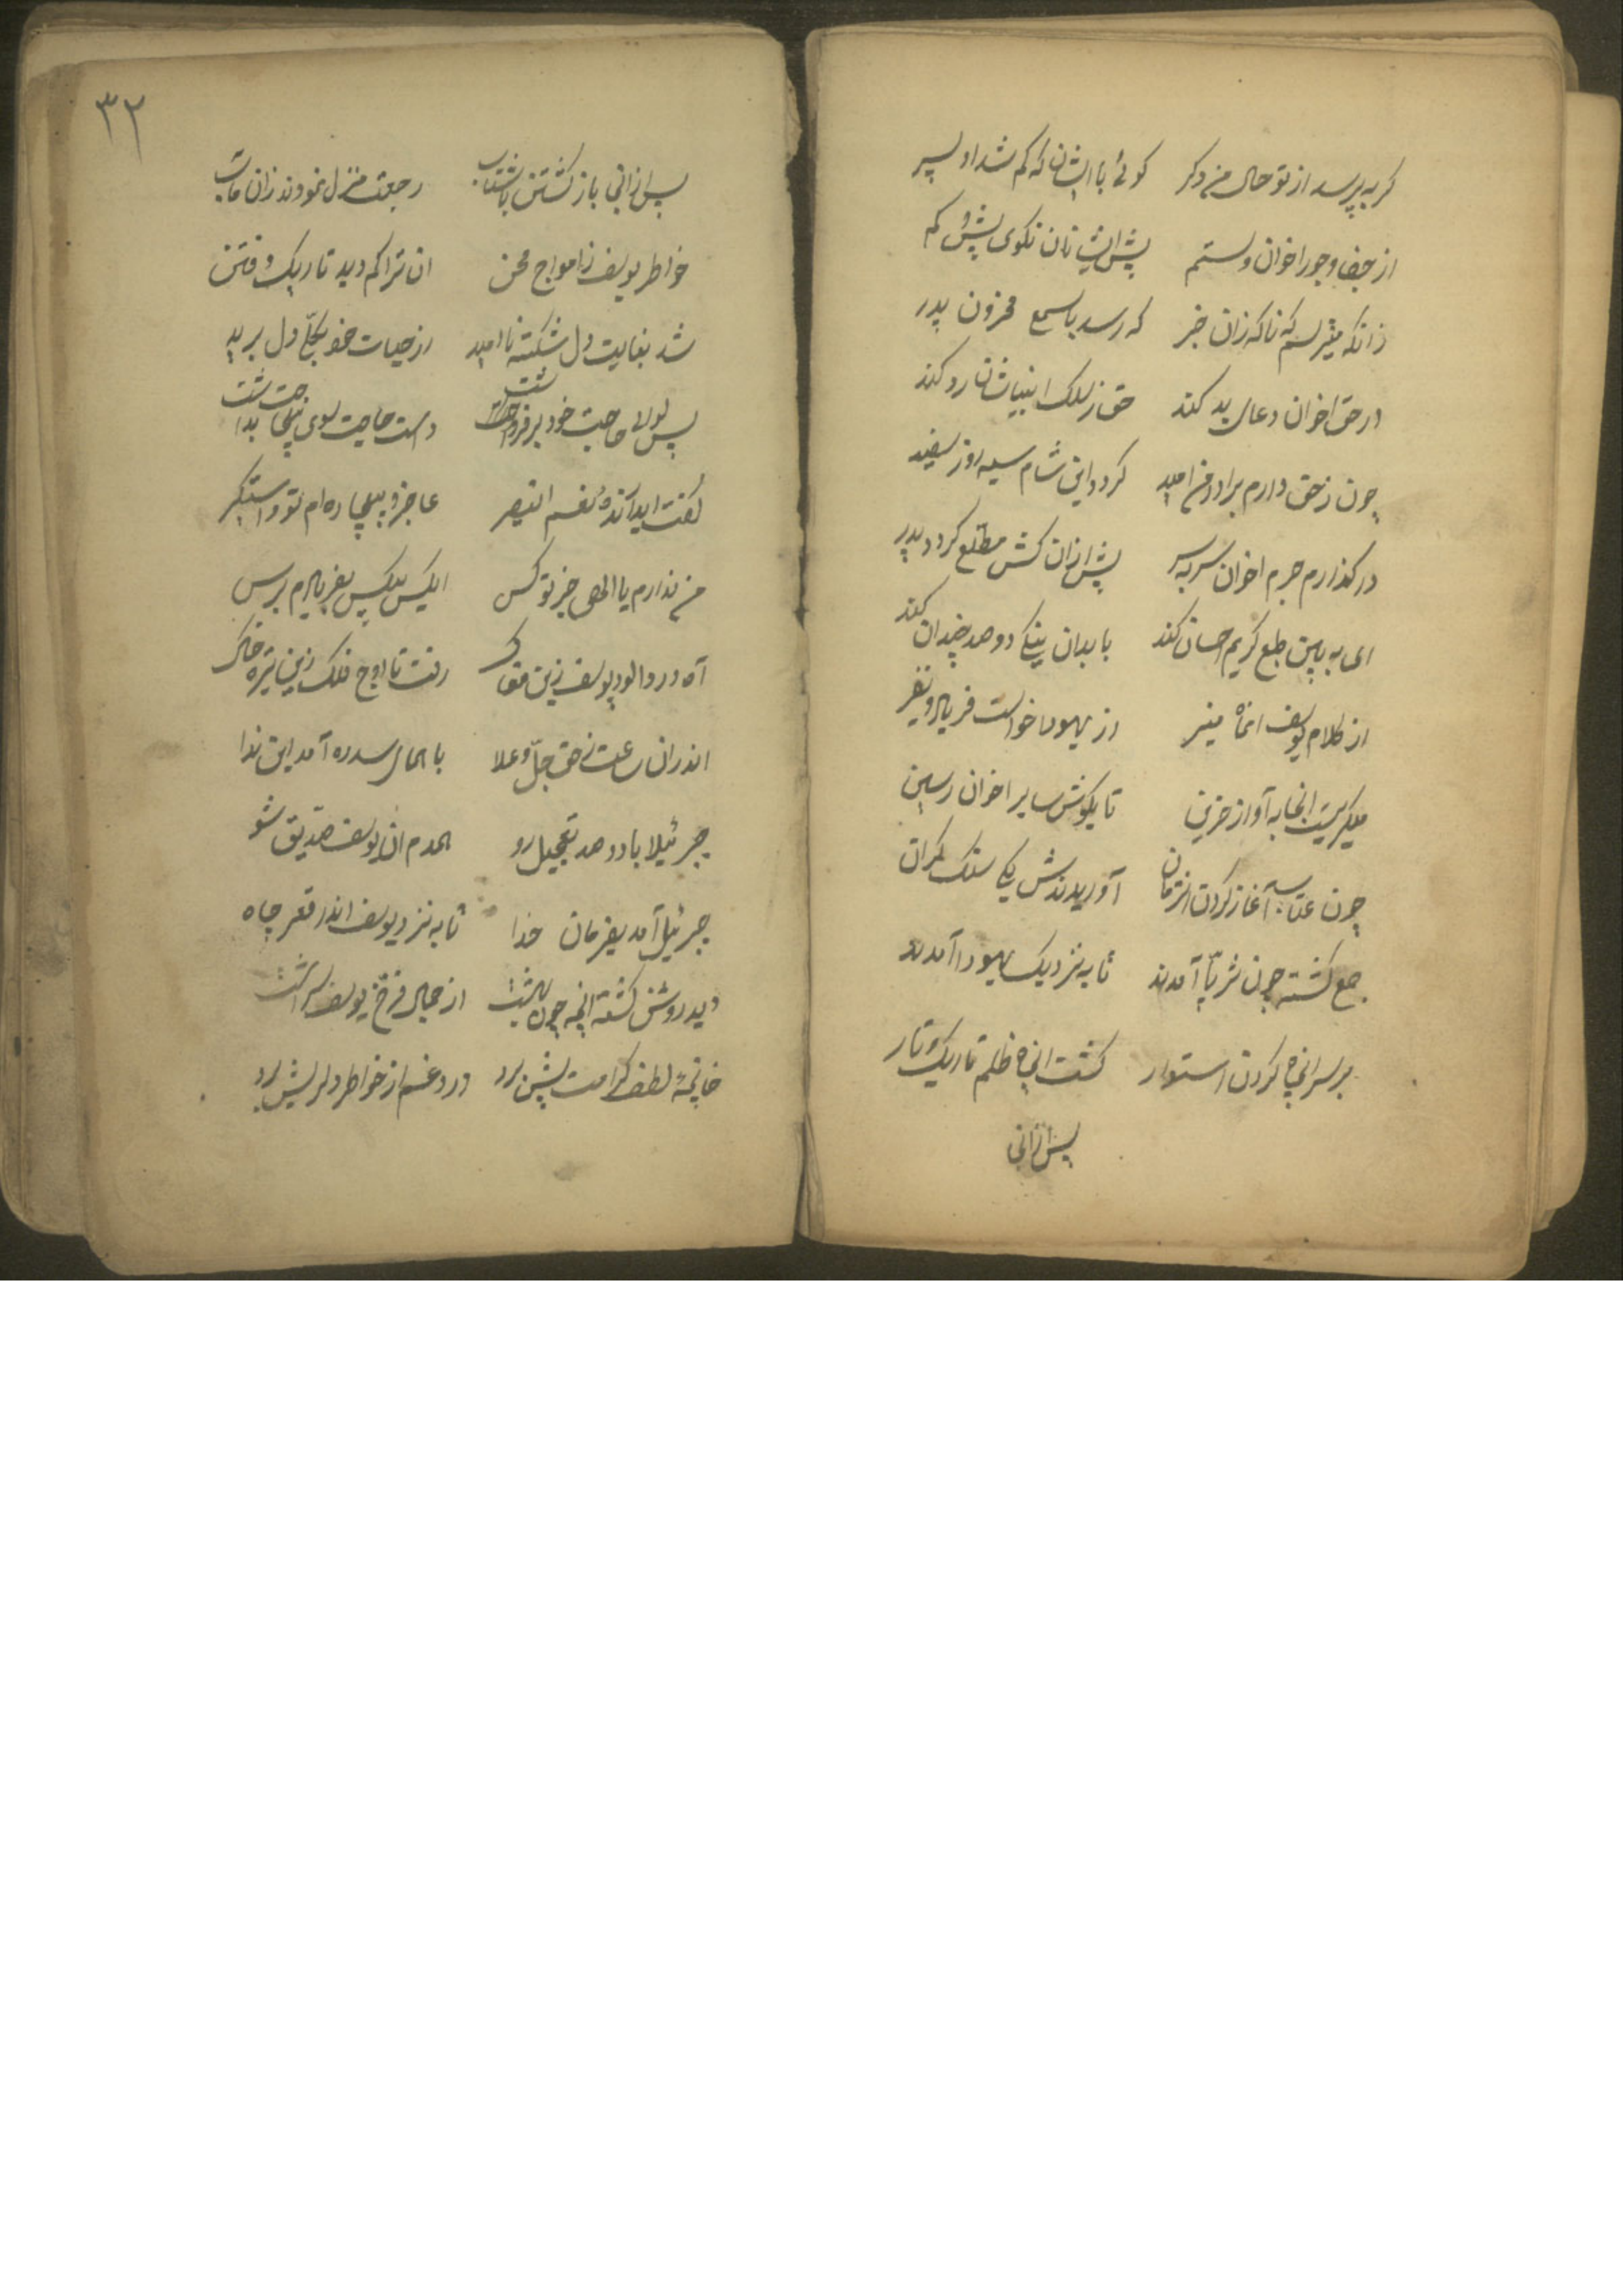 کر بپرسد از تو حال من دکر کوئی با ایشان که کم شد او پسر
از جفا و جور اخوان و ستم پیش ایشانان نکوی پیش و کم
زانکه میترسم که ناکه زان خبر که رسد با سمع محزون پدر
در حق اخوان دعای بد کند حق ز سلک انبیاشان رد کند
چون ز حق دارم برادر من امید کردد این شام سیه روز سفید
در کذارم جرم اخوان سر بسر پیش از ان کش مطلع کردد پدر
ای به بین طبع کریم احسان کند با بدان نیکی دو صد چندان کند
از کلام یوسف انماه منیر از یهودا خواست فریاد و نفیر
میکریست انجا به آواز حزین تا بکوش سایر اخوان رسین
چون عتاب آغاز کردن انزمان آوریدندش یکی سنک کران
جمع کشته چون ثریّا آمدند تا به نزدیک یهودا آمدند
بر سر انچاه کردن استوار کشت انچاه ظلم تاریک و تار
پس از انی
۳۲
پس از انی باز کشتن باشتاب رجعت منزل نمودند زان مآب
خواطر یوسف ز امواج محن ان تراکم دید تاریک و فتن
شد بغایت دل شکسته نا امید از حیات خود بکلّی دل برید
پس لوای حاجت خود بر فراشت دست حاجت سوی بیحاجت بداشت
کفت ای داننده نعم النصیر عاجز و بیچاره ام تو دستکیر
من ندارم یا الهی جز تو کس ایکس بیکس بفریادم برس
آه درد الود یوسف زین مغاک رفت تا اوج فلک زین تیره خاک
اندران ساعت ز حق جلّ و علا با همای سدره آمد این ندا
جبرئیلا با دو صد تعجیل رو همدم ان یوسف صدیق شو
جبرئیل آمد بفرمان خدا تا به نزد یوسف اندر قعر چاه
دید روشن کشته انچه چون بهشت از جمال فرخ یوسف سرشت
خاتمه لطف کرامت پیش برد درد غم از خواطر دلریش برد